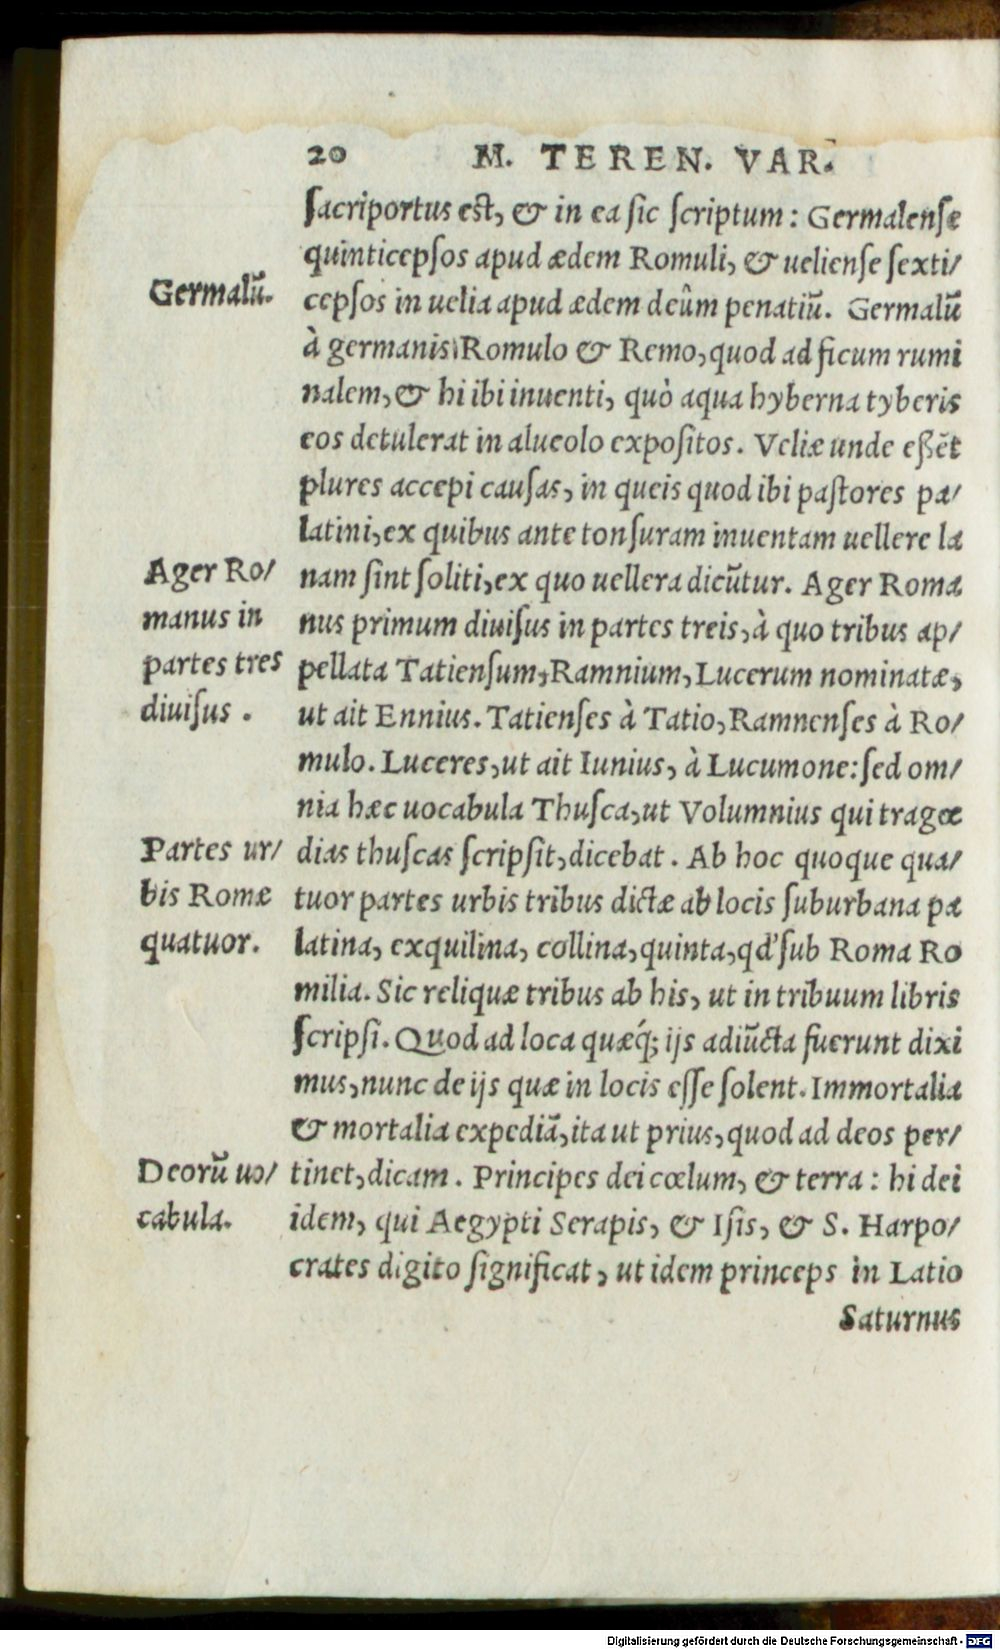 20 M. TEREN. VAR.
ſacriportus eſt, & in ea ſic ſcriptum: Germalenſe
quinticepſos apud ædem Romuli, & uelienſe ſexti/
Germalū.
cepſos in uelia apud ædem deûm penatiū. Germalū
à germanis Romulo & Remo, quod ad ficum rumi
nalem, & hi ibi inuenti, quò aqua hyberna tyberis
eos detulerat in alueolo expoſitos. Veliæ unde eßēt
plures accepi cauſas, in queis quod ibi paſtores pa/
latini, ex quibus ante tonſuram inuentam uellere la
Ager Ro/
manus in
partes tres
diuiſus.
nam ſint ſoliti, ex quo uellera dicūtur. Ager Roma
nus primum diuiſus in partes treis, à quo tribus ap/
pellata Tatienſum, Ramnium, Lucerum nominatæ,
ut ait Ennius. Tatienſes à Tatio, Ramnenſes à Ro/
mulo. Luceres, ut ait Iunius, à Lucumone: ſed om/
nia hæc uocabula Thuſca, ut Volumnius qui tragœ
Partes ur/
bis Romæ
quatuor.
dias thuſcas ſcripſit, dicebat. Ab hoc quoque qua/
tuor partes urbis tribus dictæ ab locis ſuburbana pa
latina, exquilina, collina, quinta, qd' ſub Roma Ro
milia. Sic reliquæ tribus ab his, ut in tribuum libris
ſcripſi. Quod ad loca quæq́; ijs adiūcta fuerunt dixi
mus, nunc de ijs quæ in locis eſſe ſolent. Immortalia
& mortalia expediā, ita ut prius, quod ad deos per/
Deorū uo/
cabula.
tinet, dicam. Principes dei cœlum, & terra: hi dei
idem, qui Aegypti Serapis, & Iſis, & S. Harpo/
crates digito ſignificat, ut idem princeps in Latio
Saturnus
Digitalisierung gefördert durch die Deutsche Forschungsgemeinschaft - DFG